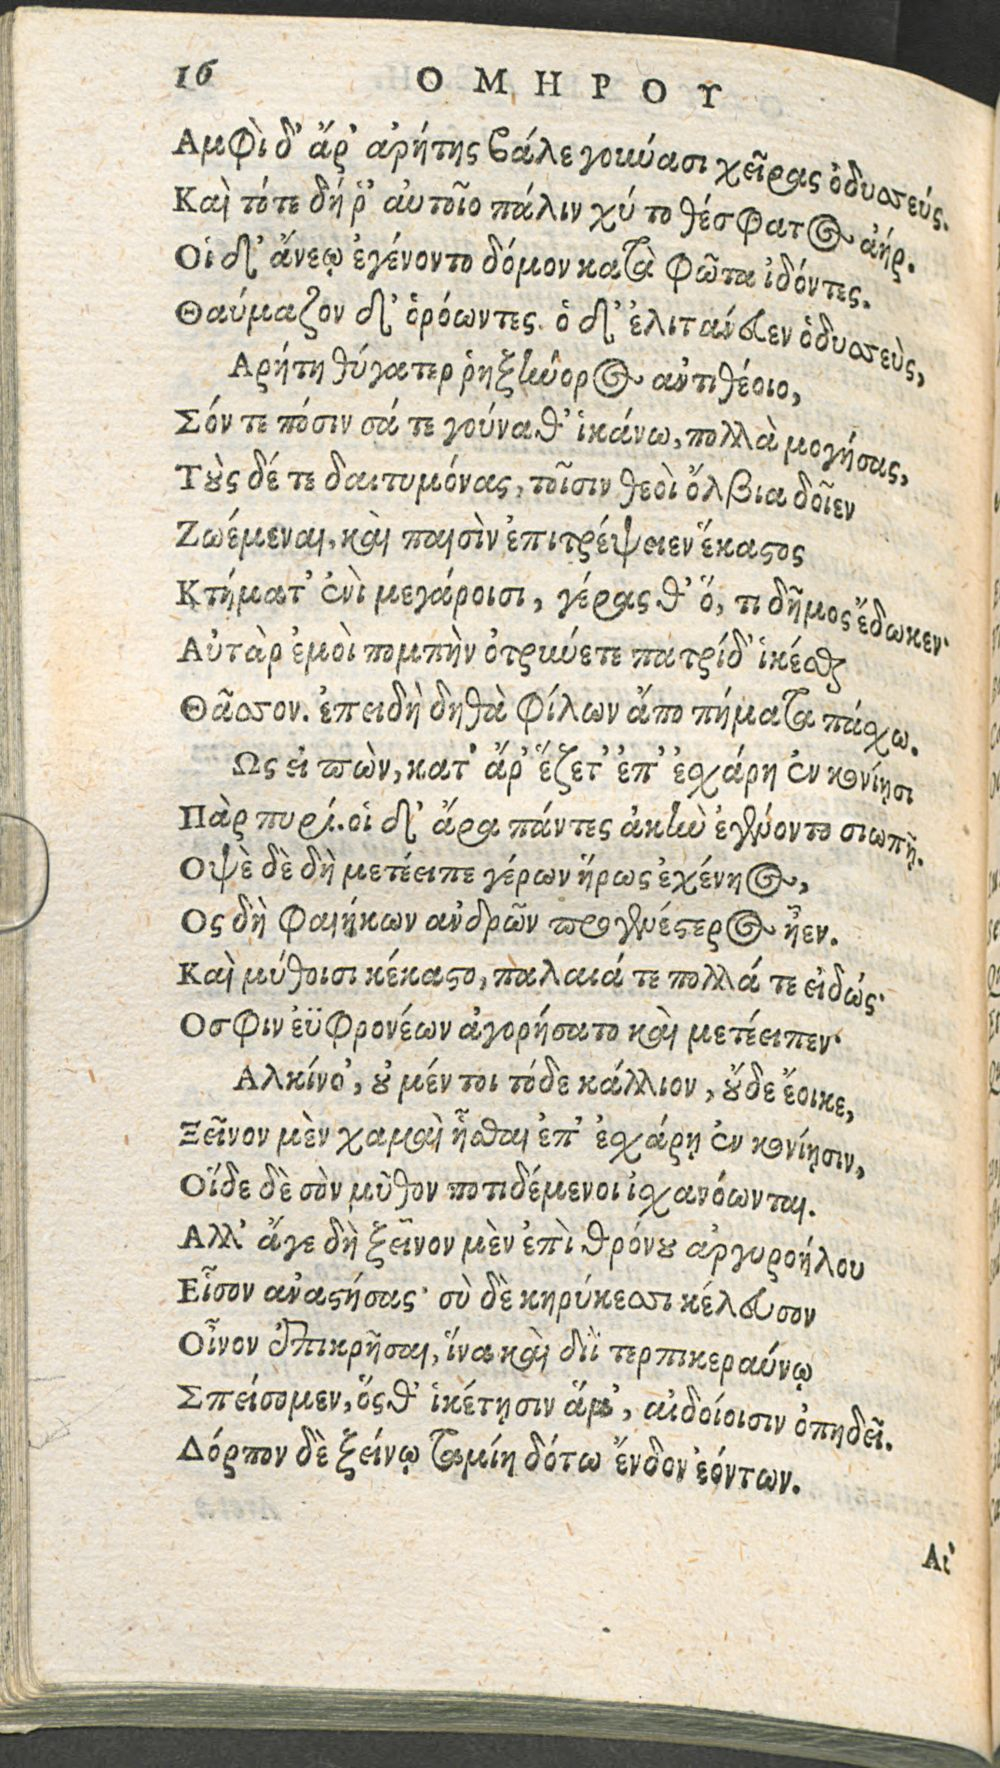 16 ΟΜΗΡΟΥ
Αμφὶ δ' ἄρ' ἀρήτης βάλε γουνάσι χεῖρας ὀδυσσεύς.
Καὶ τότε δή ῥ' αὐτοῖο πάλιν χύτο θέσφατος ἀήρ.
Οἱ δ' ἄνεῳ ἐγένοντο δόμον κατὰ φῶτα ἰδόντες.
Θαύμαζον δ' ὁρόωντες. ὁ δ' ἐλιτάνευεν ὀδυσσεὺς,
Αρήτη θύγατερ ῥηξήνορος ἀντιθέοιο,
Σόν τε πόσιν σά τε γούναθ' ἱκάνω, πολλὰ μογήσας,
Τούς δέ τε δαιτυμόνας, τοῖσιν θεοὶ ὄλβια δοῖεν
Ζωέμεναι, καὶ παισὶν ἐπιτρέψειεν ἕκαστος
Κτήματ' ἐνὶ μεγάροισι, γέρας θ' ὅ, τι δῆμος ἔδωκεν·
Αὐτὰρ ἐμοὶ πομπὴν ὀτρύνετε πατρίδ' ἱκέσθαι
Θᾶσσον. ἐπειδὴ δηθὰ φίλων ἄπο πήματα πάσχω.
Ως εἰπὼν, κατ' ἄρ' ἕζετ' ἐπ' ἐσχάρῃ ἐν κονίῃσι
Πὰρ πυρί. οἱ δ' ἄρα πάντες ἀκὴν ἐγένοντο σιωπῇ.
Οψὲ δὲ δὴ μετέειπε γέρων ἥρως ἐχένηος,
Ος δὴ φαιήκων ἀνδρῶν προγενέστερος ἦεν.
Καὶ μύθοισι κέκαστο, παλαιά τε πολλά τε εἰδώς·
Οσφιν ἐϋφρονέων ἀγορήσατο καὶ μετέειπεν·
Αλκίνο', οὐ μέν τοι τόδε κάλλιον, οὔδε ἔοικε,
Ξεῖνον μὲν χαμαὶ ἧσθαι ἐπ' ἐσχάρῃ ἐν κονίῃσιν,
Οἵδε δὲ σὸν μῦθον ποτιδέμενοι ἰσχανόωνται.
Αλλ' ἄγε δὴ ξεῖνον μὲν ἐπὶ θρόνου ἀργυροήλου
Εἷσον ἀναστήσας· σὺ δὲ κηρύκεσσι κέλευσον
Οἶνον ἐπικρῆσαι, ἵνα καὶ διῒ τερπικεραύνῳ
Σπείσομεν, ὅς θ' ἱκέτῃσιν ἅμ', αἰδοίοισιν ὀπηδεῖ.
Δόρπον δὲ ξείνῳ ταμίη δότω ἔνδον ἐόντων.
Αὐ